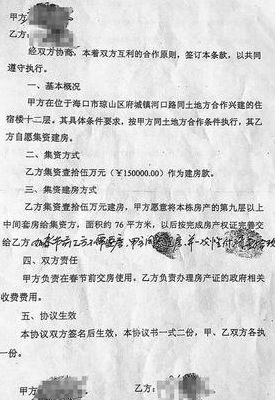 甲方
乙方:
经双方协商,本着双方互利的合作原则,签订本条款,以共同
遵守执行。
一、基本概况
甲方在位于海口市琼山区府城镇河口路同土地方合作兴建的住
宿楼十二层。其具体条件要求,按甲方同土地方合作条件执行,其乙
方自愿集资建房。
二、集资方式
乙方集资壹拾伍万元(¥150000.00)作为建房款。
三、集资建房方式
乙方集资壹拾伍万元建房,甲方愿意将本栋房产的第九层以上
中间套房给集资方,面积约 76 平方米,以后按完成房产权证完善交
给乙方
四、双方责任
甲方负责在春节前交房使用。乙方负责办理房产证的政府相关
收费费用。
五、协议生效
本协议双方签名后生效,本协议书一式二份,甲、乙双方各执
一份。
甲方
乙方: